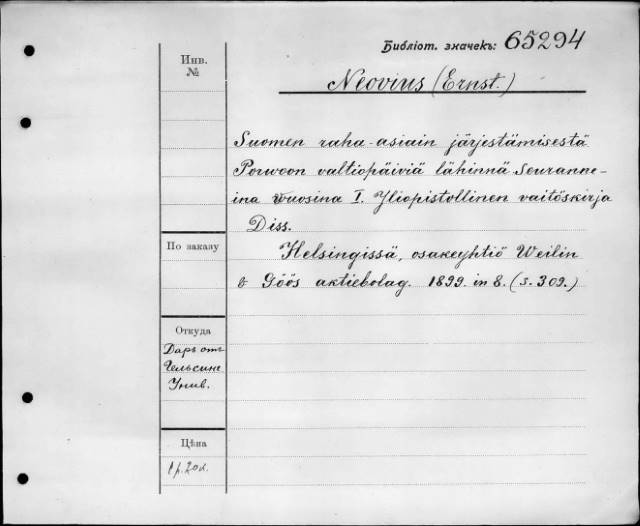 Библіот. значекъ: 65294
Инв.
№
Neovius (Ernst.)
Suomen raha-asiain järjestämisestä
Porwoon valtiopäiviä lähinnä seuranne-
ina vuosina I. Yliopistollinen vaitöskirja
Diss.
По заказу
Helsingissä, osakeyhtiö Weilin
& Göös aktiebolag. 1899. in 8. (s. 309.)
Откуда
Даръ отъ
Гельсинг
Унив.
Цѣна
1р.20к.